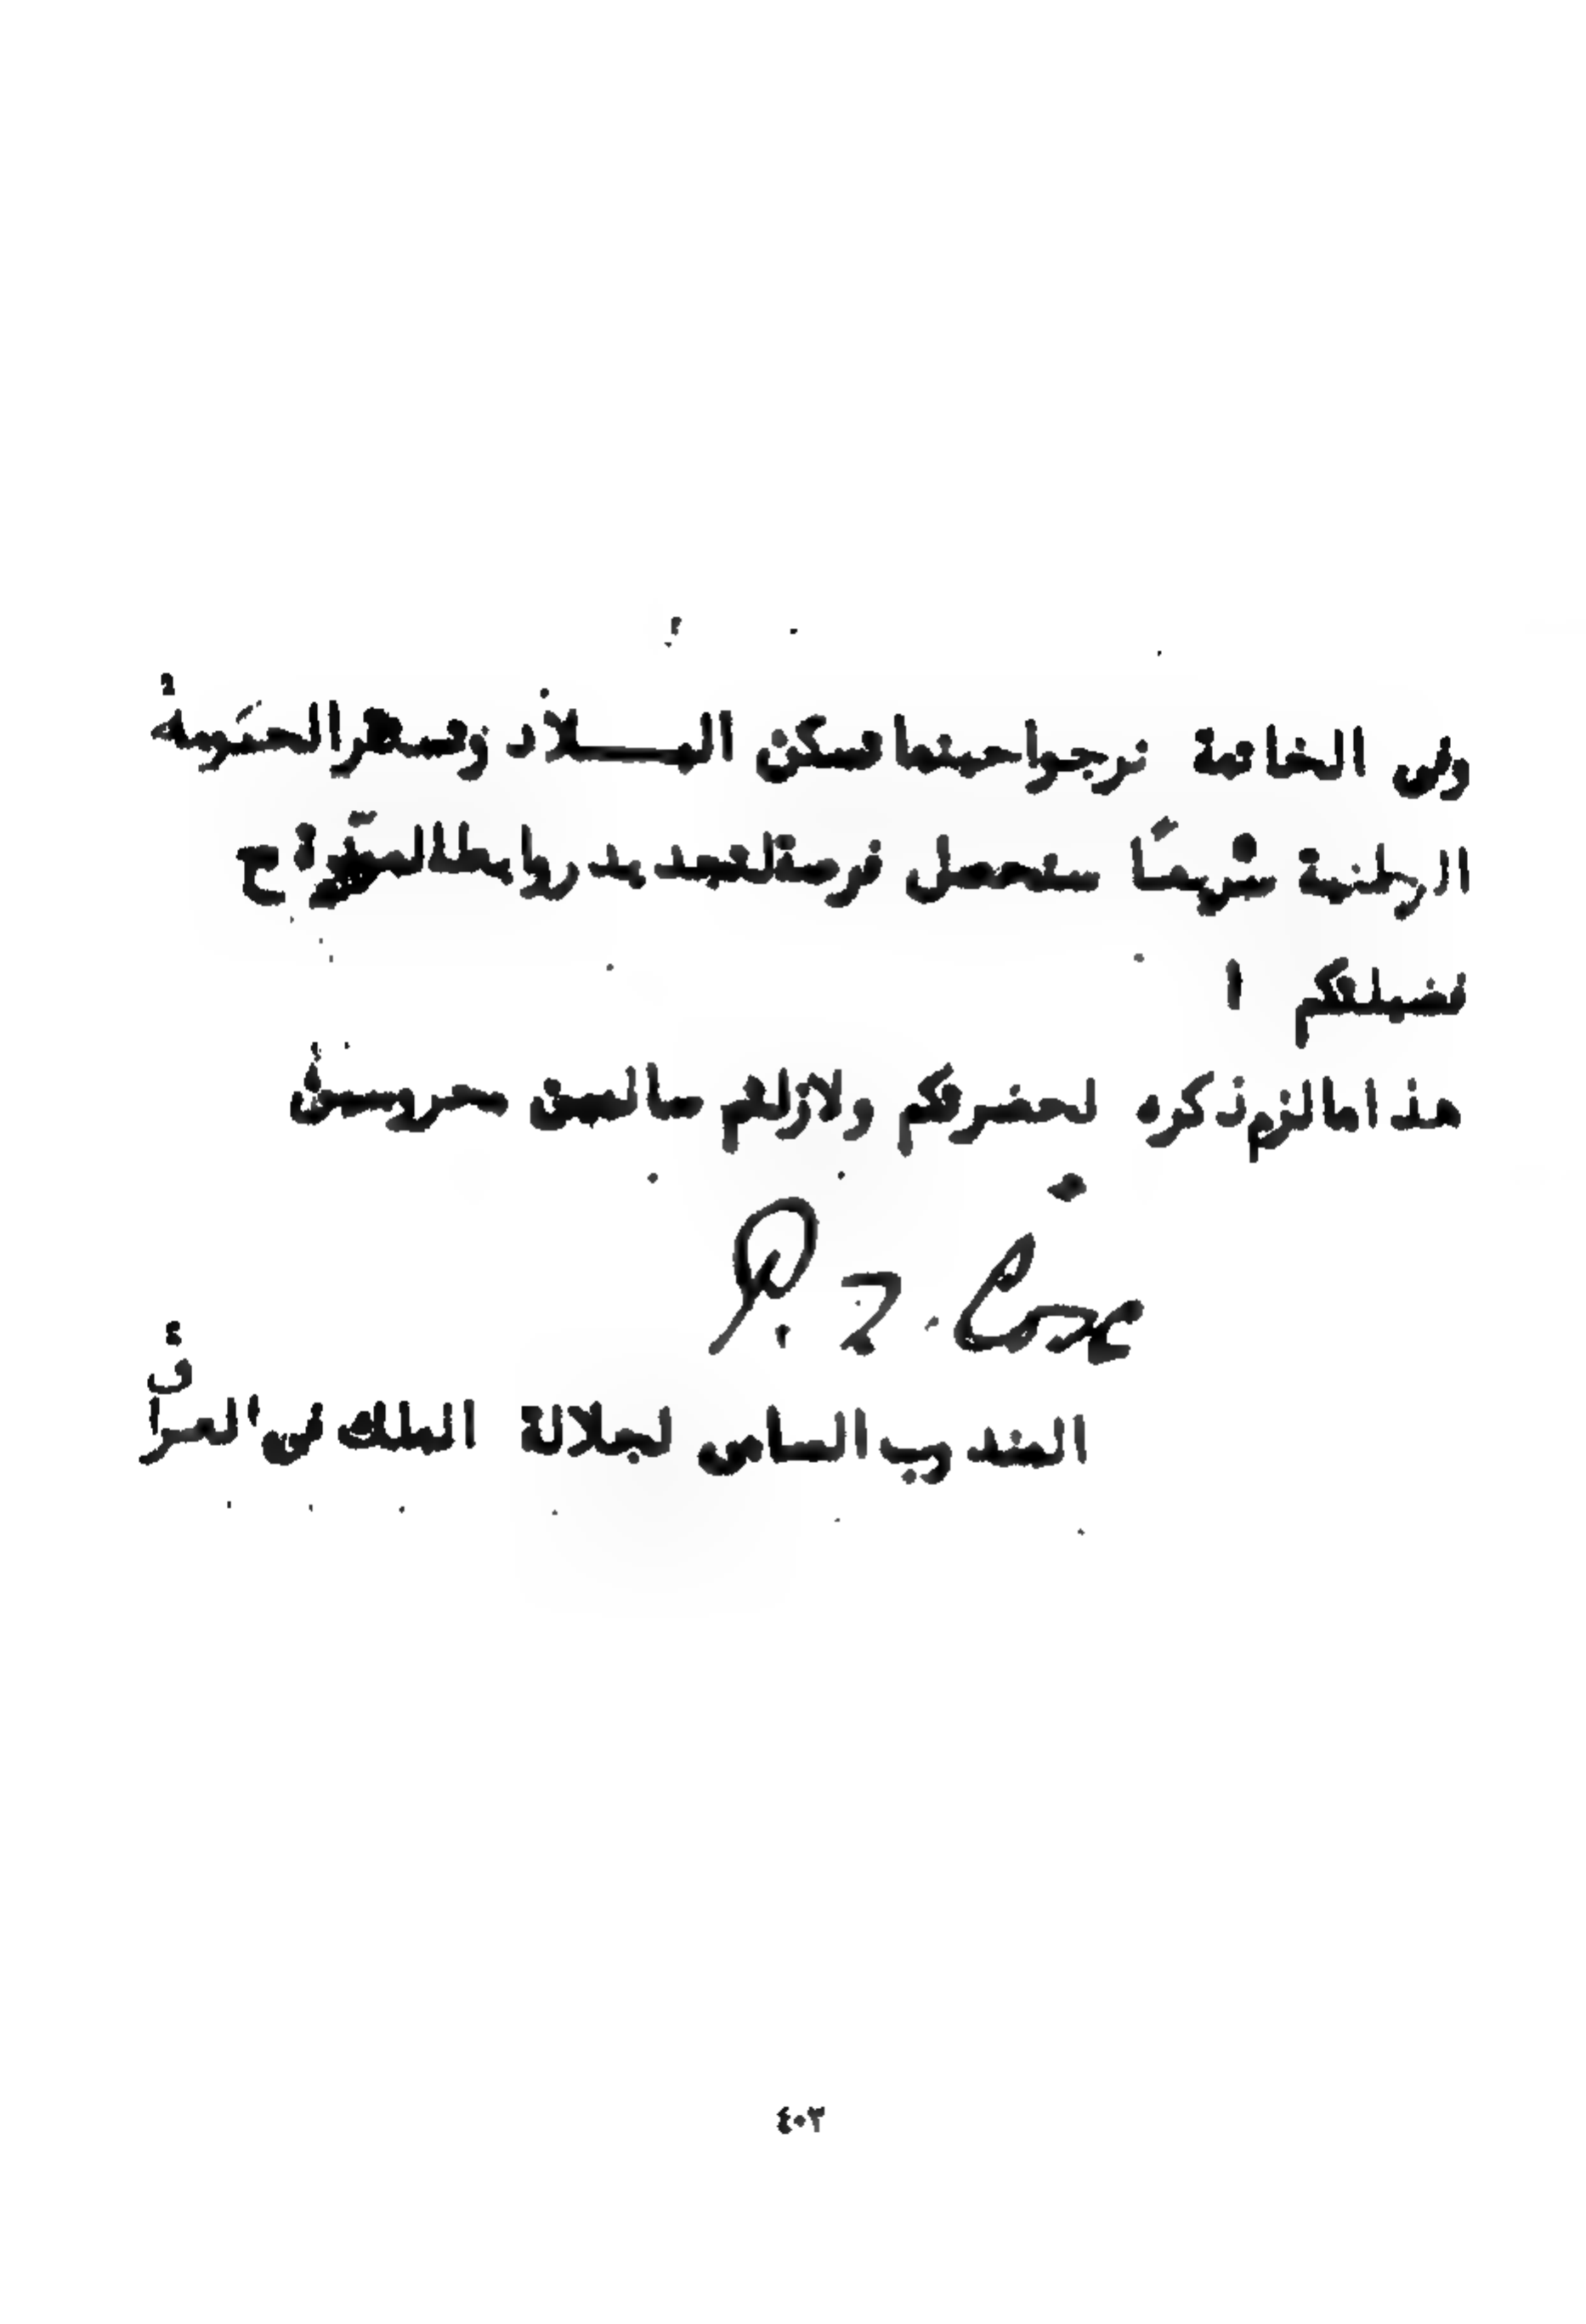 وفى الخاتمة نرجوا حينما تسكن البـــلاد وتستقر الحكومة
الوطنية ستحصل فرصة لتجديد روابط المودة مع
فضيلتكم ا
هذا ما لزم ذكره لحضرتكم ولازلتم سالمين محروسين
P. Z. Cox
المندوب السامى لجلالة الملك فى العراق
٤٠٣